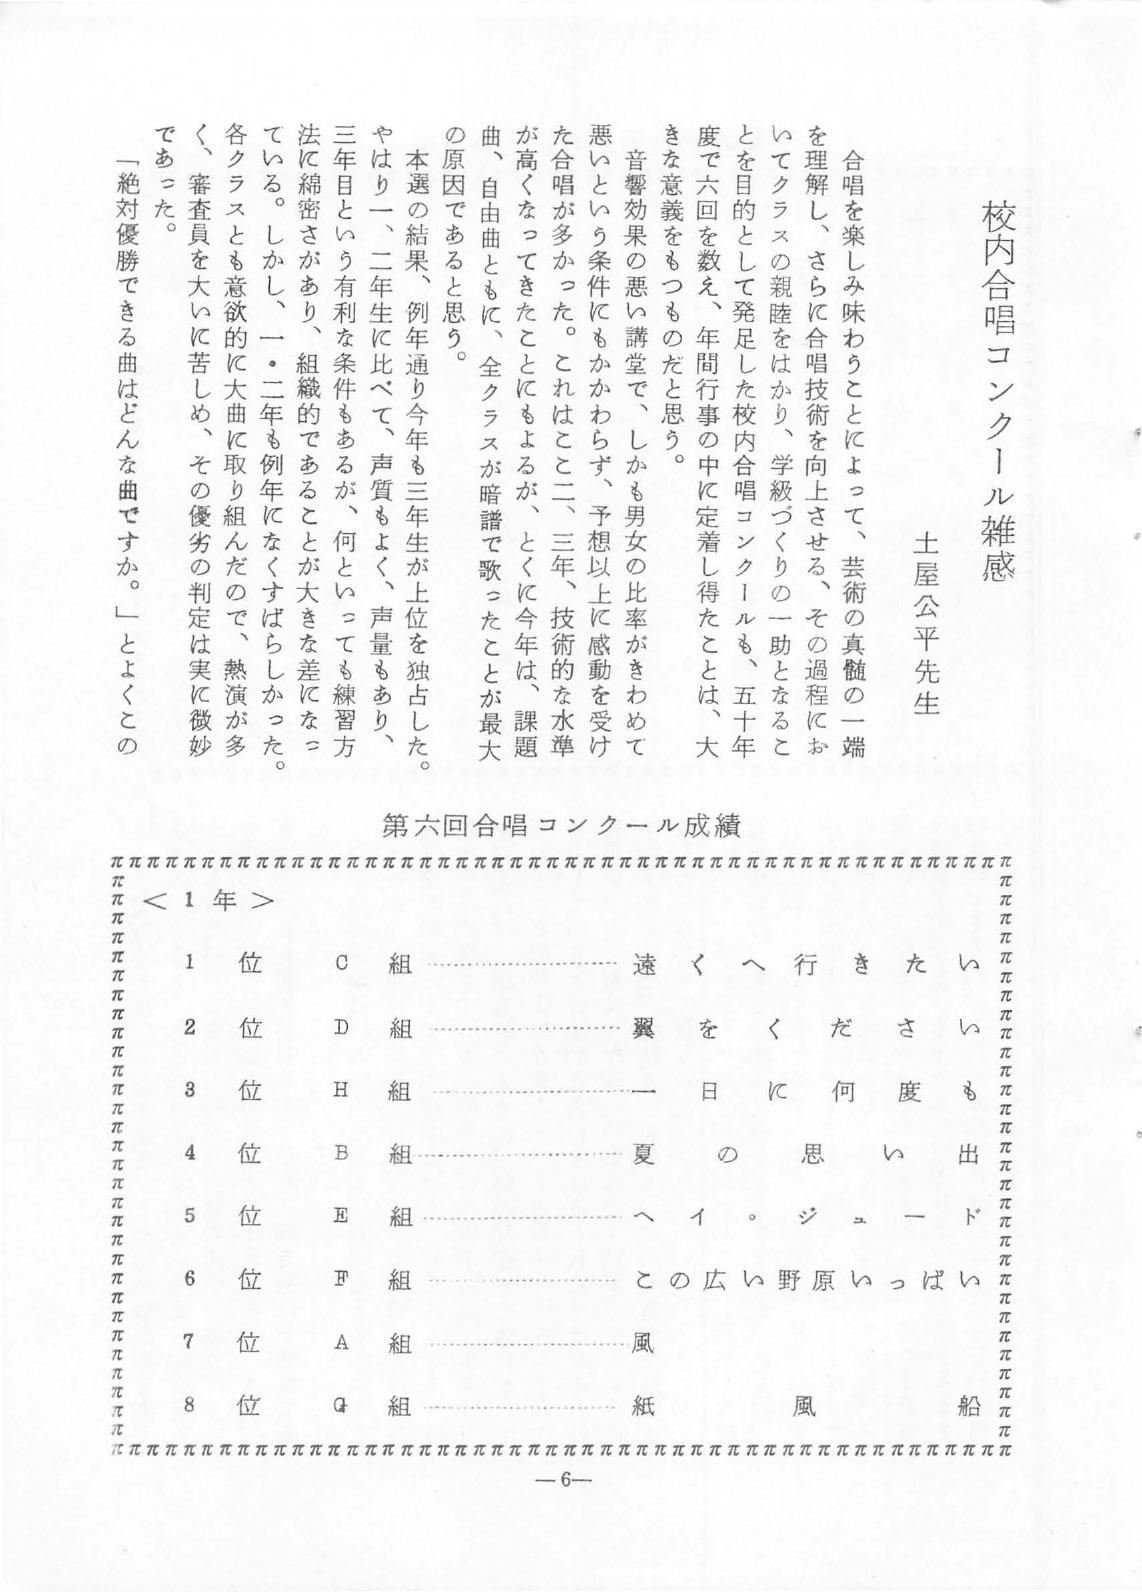 校内合唱コンクール雑感
土屋公平先生
合唱を楽しみ味わうことによって、芸術の真髄の一端
を理解し、さらに合唱技術を向上させる、その過程にお
いてクラスの親睦をはかり、学級づくりの一助となるこ
とを目的として発足した校内合唱コンクールも、五十年
度で六回を数え、年間行事の中に定着し得たことは、大
きな意義をもつものだと思う。
音響効果の悪い講堂で、しかも男女の比率がきわめて
悪いという条件にもかかわらず、予想以上に感動を受け
た合唱が多かった。これはここ二、三年、技術的な水準
が高くなってきたことにもよるが、とくに今年は、課題
曲、自由曲ともに、全クラスが暗譜で歌ったことが最大
の原因であると思う。
本選の結果、例年通り今年も三年生が上位を独占した。
やはり一、二年生に比べて、声質もよく、声量もあり、
三年目という有利な条件もあるが、何といっても練習方
法に綿密さがあり、組織的であることが大きな差になっ
ている。しかし、一・二年も例年になくすばらしかった。
各クラスとも意欲的に大曲に取り組んだので、熱演が多
く、審査員を大いに苦しめ、その優劣の判定は実に微妙
であった。
「絶対優勝できる曲はどんな曲ですか。」とよくこの
第六回合唱コンクール成績
<1年>
1位 C組…………………遠くへ行きたい
2位 D組…………………翼をください
3位 H組…………………一日に何度も
4位 B組…………………夏の思い出
5位 E組…………………ヘイ。ジュード
6位 F組…………………この広い野原いっぱい
7位 A組…………………風
8位 G組…………………紙風船
—6—